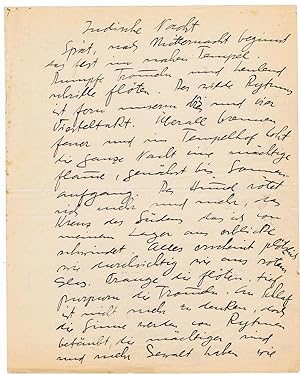 Indische Nacht
Spät, nach Mitternacht beginnt
das Fest im nahen Tempel
Dumpfe Trommeln und heulend
schrille Flöten. Der wilde Rytmus
ist fern unserem und vier
Vierteltakt. Überall brennen
Feuer und im Tempelhof loht
die ganze Nacht eine mächtige
Flamme, genährt bis Sonnen-
aufgang. Der Mond rötet
sich mehr und mehr, das
Kreuz des Südens das ich von
meinem Lager aus erblicke
schwindet Alles erscheint plötzlich
wie durchsichtig wie aus rotem
Glas. Orange die Flöten, tief
purpurn die Trommeln. An Schlaf
ist nicht mehr zu denken, doch
die Sinne werden von Rytmen
betäubt die mächtiger und
und mehr Gewalt haben wie